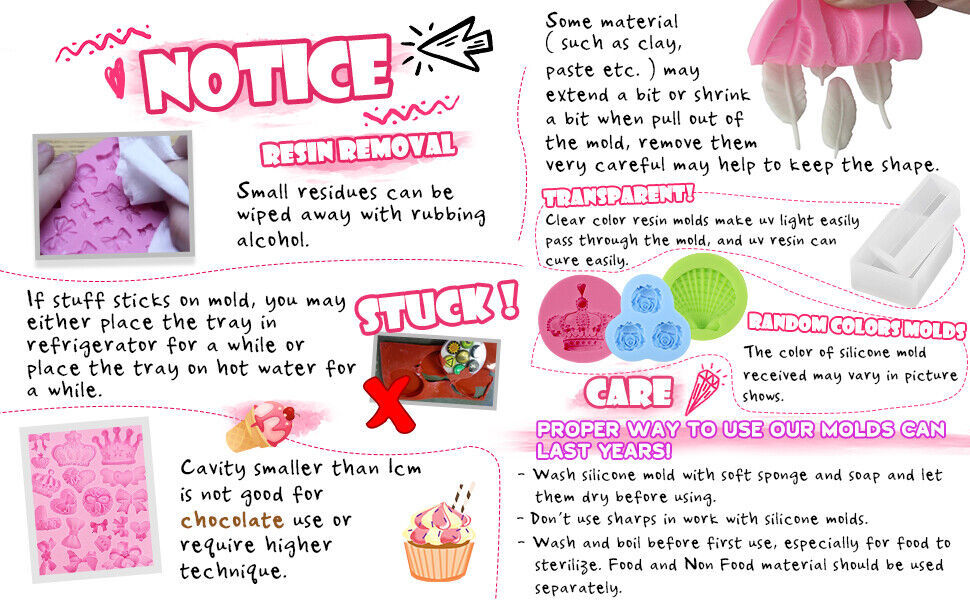 NOTICE
RESIN REMOVAL
Small residues can be
wiped away with rubbing
alcohol.
If stuff sticks on mold, you may
either place the tray in
refrigerator for a while or
place the tray on hot water for
a while.
STUCK!
Cavity smaller than 1cm
is not good for
chocolate use or
require higher
technique.
Some material
( such as clay,
paste etc. ) may
extend a bit or shrink
a bit when pull out of
the mold, remove them
very careful may help to keep the shape.
TRANSPARENT!
Clear color resin molds make uv light easily
pass through the mold, and uv resin can
cure easily.
RANDOM COLORS MOLDS
The color of silicone mold
received may vary in picture
shows.
CARE
PROPER WAY TO USE OUR MOLDS CAN
LAST YEARS!
- Wash silicone mold with soft sponge and soap and let
them dry before using.
- Don't use sharps in work with silicone molds.
- Wash and boil before first use, especially for food to
sterilize. Food and Non Food material should be used
separately.